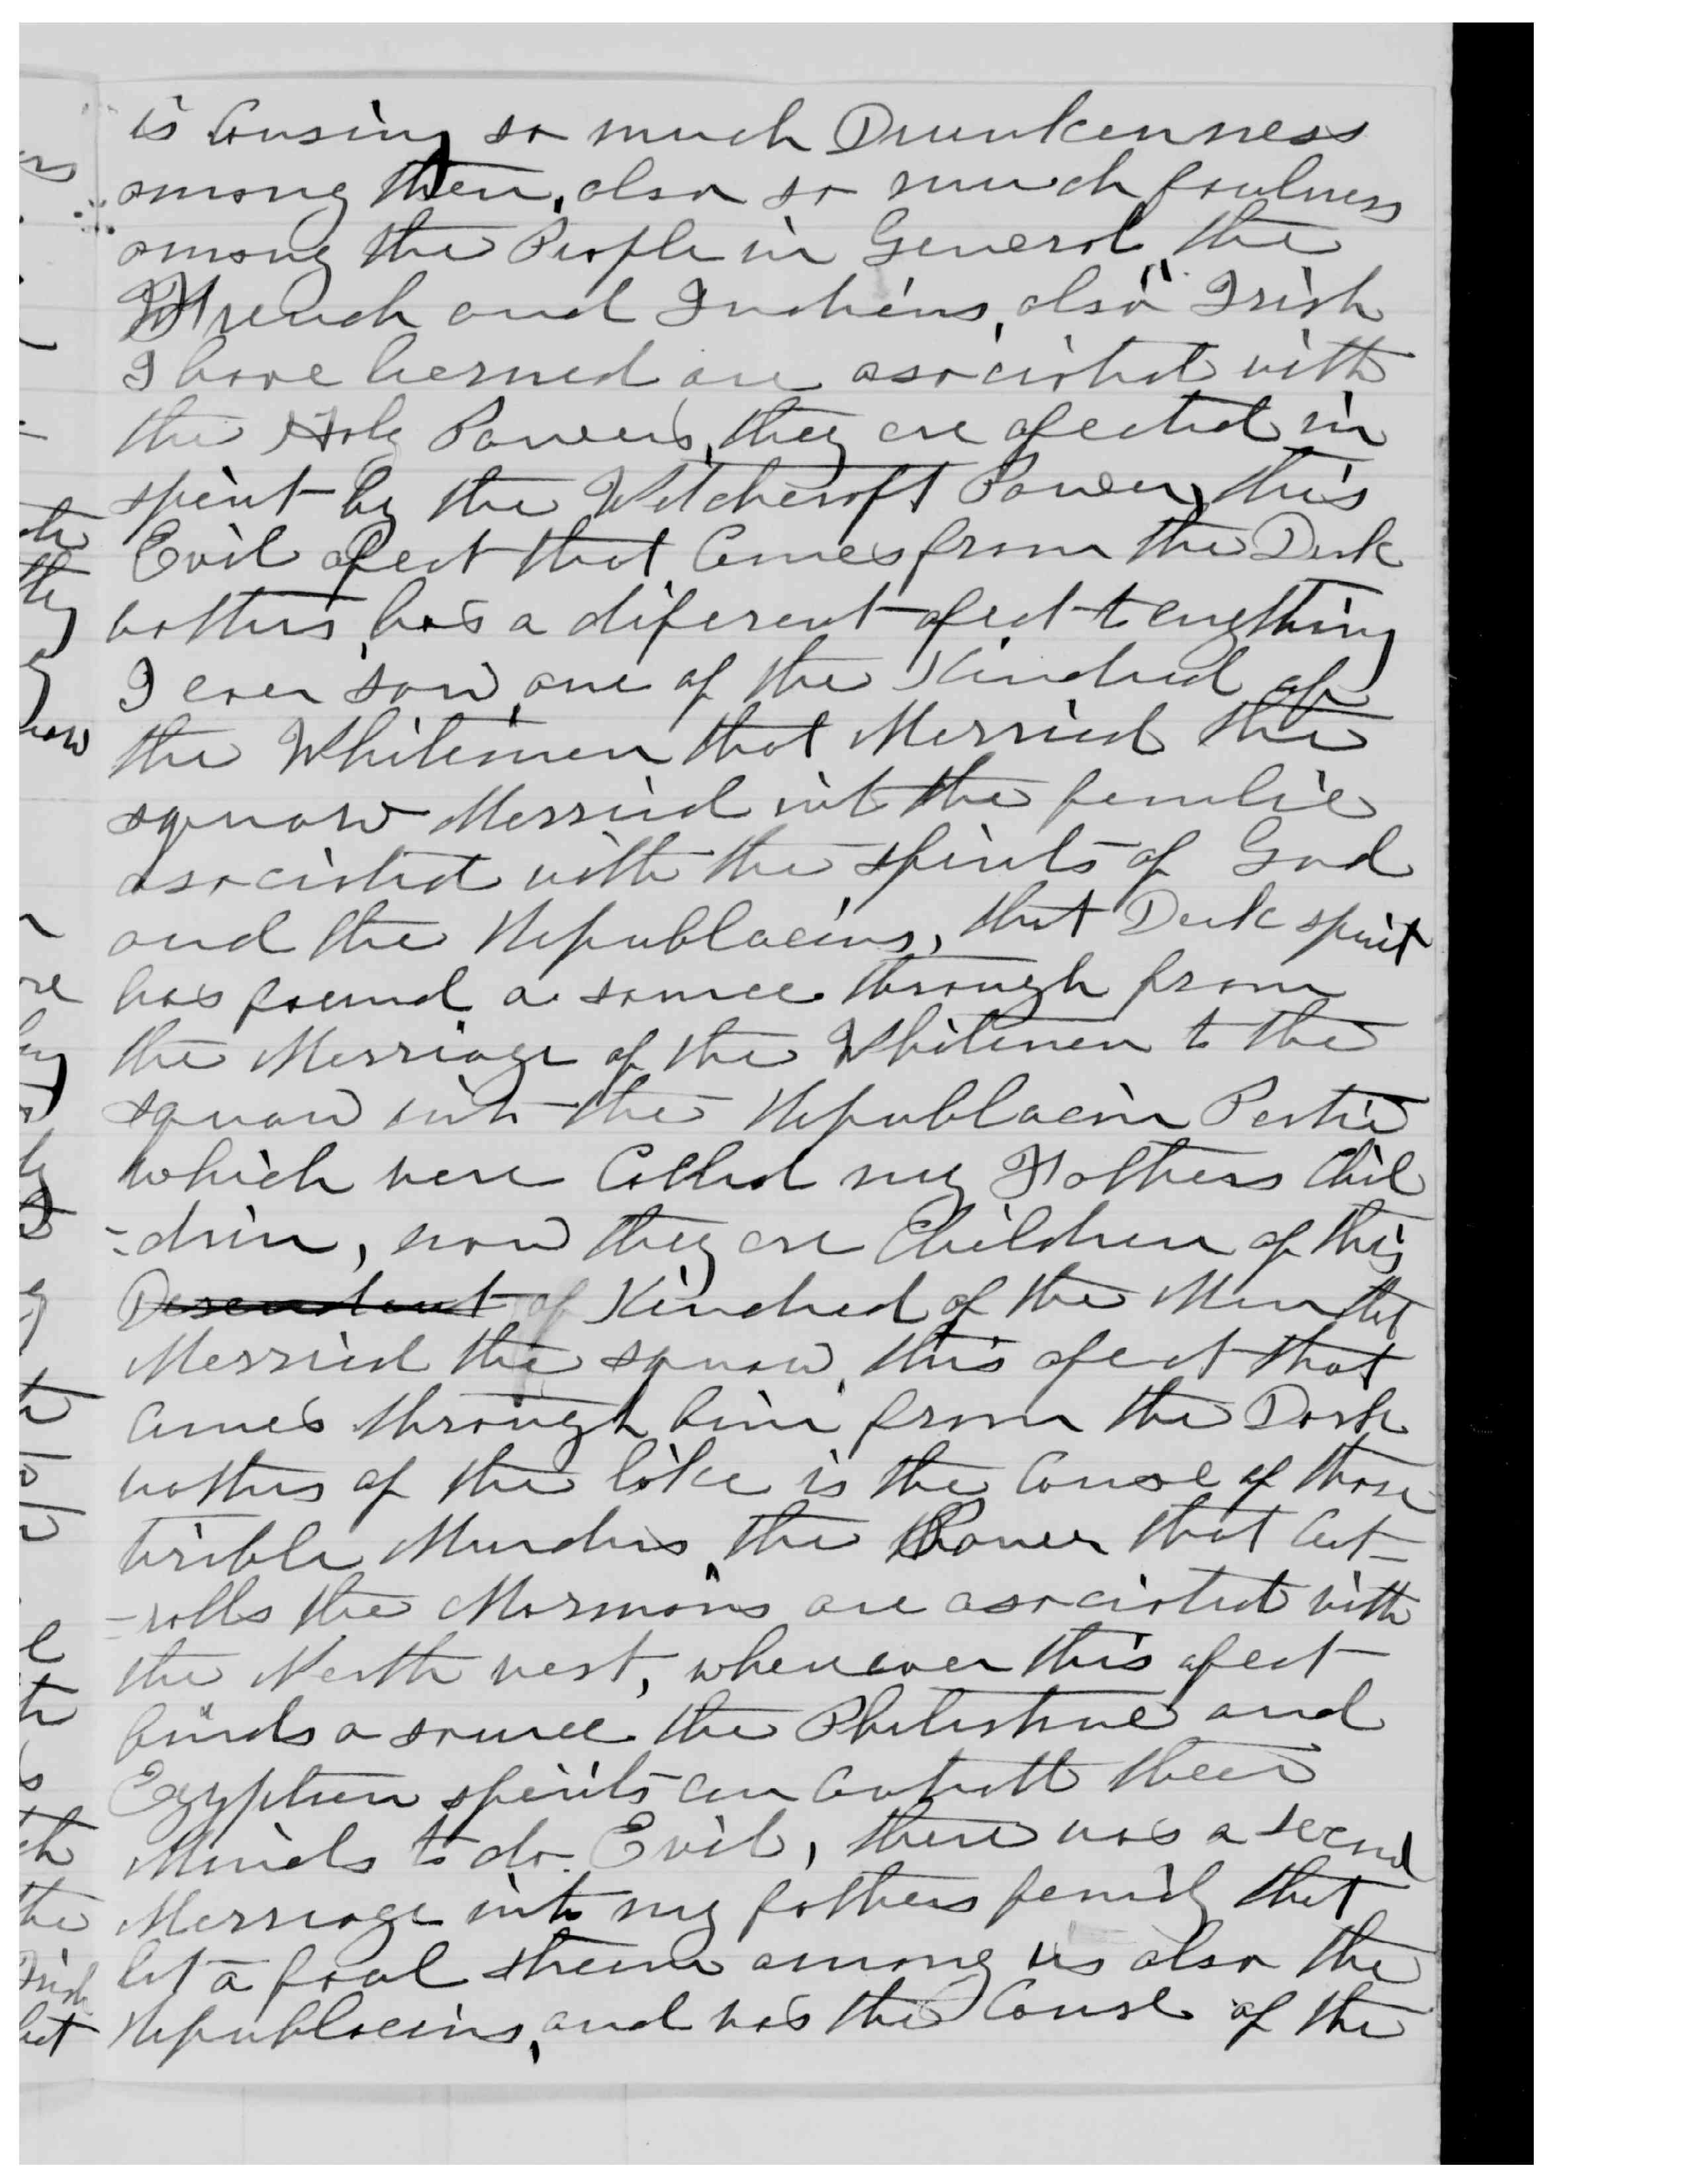 is Causing so much Drunkenness
among them, also so much foulness
among the People in General, the
French and Indians, also Irish
I have lerned are asociated with
the Holy Powers, they are afected in
spirit by the Witchcroft Power, this
Evil afect that Comes from the Dark
watters, has a diferent afect to enything
I ever saw, one of the Kindred of
the Whitemen that Merried the
squaw Merried into the familie
asociated with the spirits of God
and the Republacins, that Dark spirit
has found a source through from
the Merriage of the Whitemen to the
squaw into the Republacin Partie
which were Called my Fathers Chil
-drin, now they are Children of this
Desendant of Kindred of the Man that
Merried the squaw, this afect that
Comes through him from the Dark
watters of the lake is the Cause of those
tirible Murders, the Power that Cont-
-rolls the Mormons are asociated with
the North west, whenever this afect
finds a source the Philistine and
Egyptien spirits can Controll their
Minds to do Evil, there was a second
Merriage into my fathers family that
let a foul stream among us also the
Republacins, and was the Cause of the